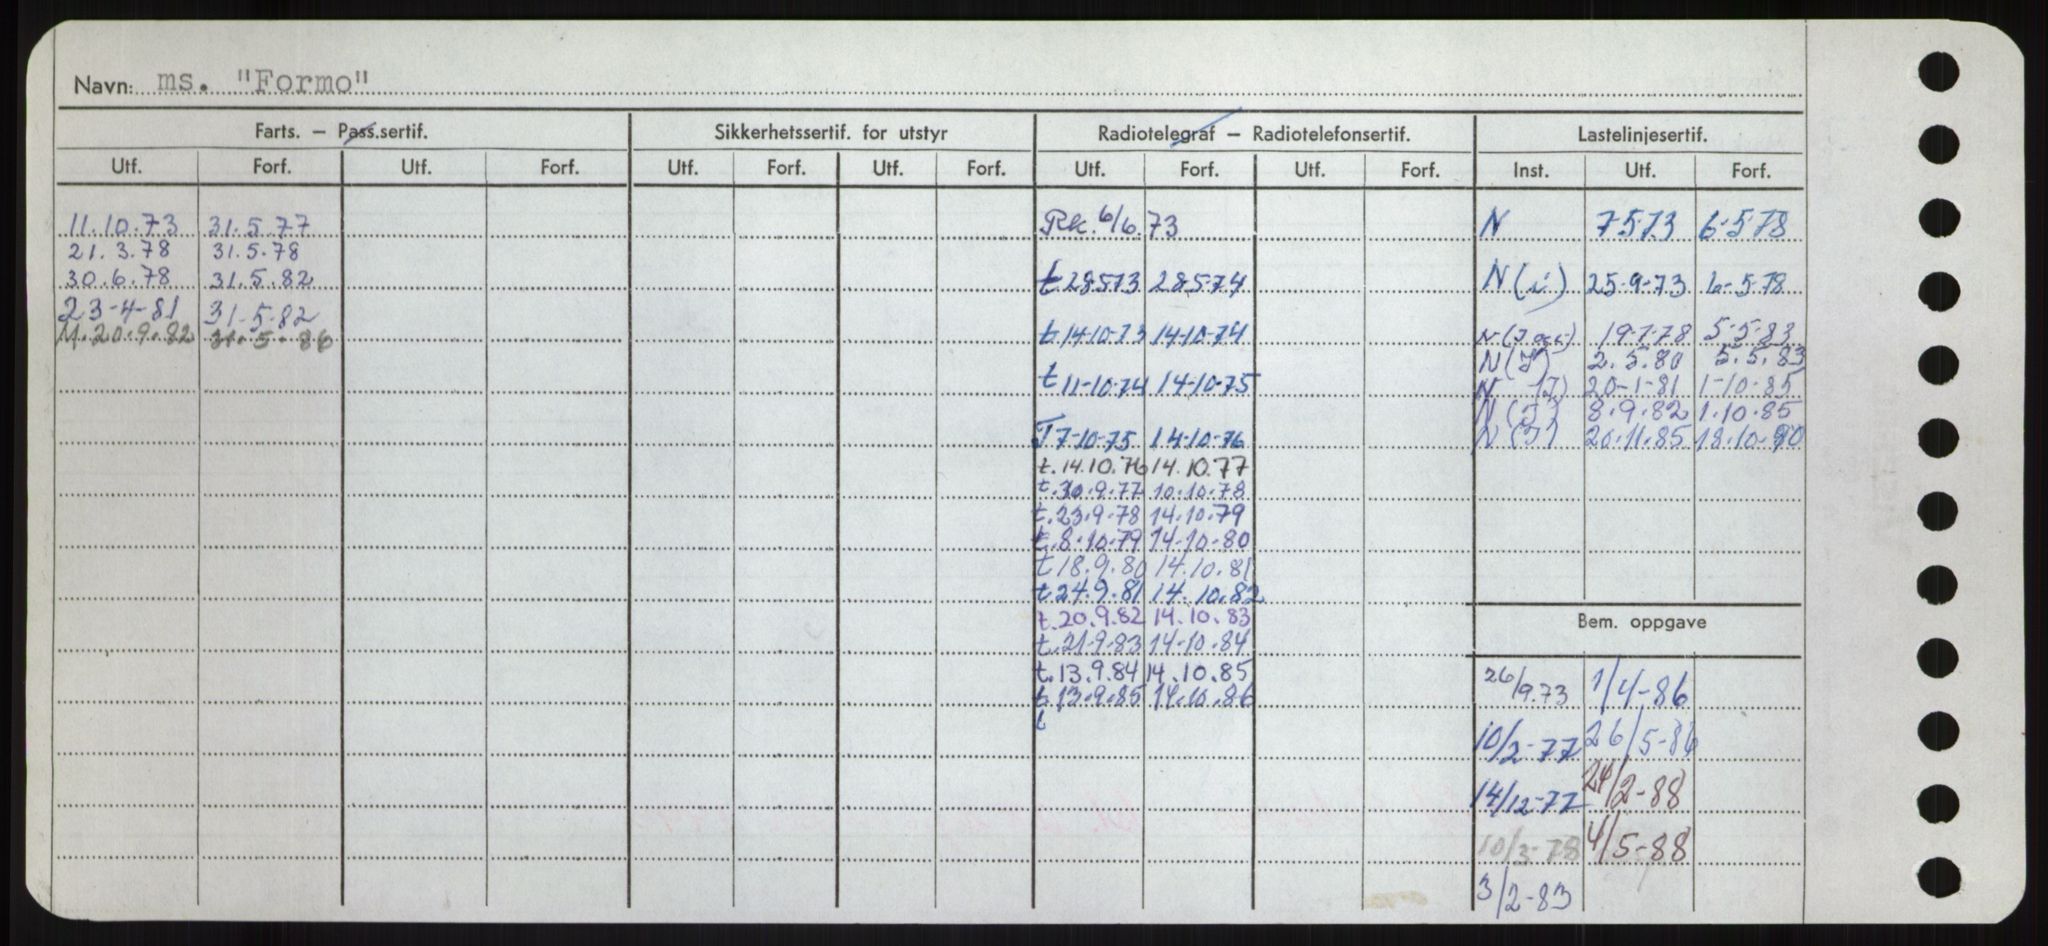 Navn: ms. "Formo"
Farts. – Pass.sertif. Sikkerhetssertif. for utstyr Radiotelegraf – Radiotelefonsertif. Lastelinjesertif.
Utf. Forf. Utf. Forf. Utf. Forf. Utf. Forf. Utf. Forf. Utf. Forf. Inst. Utf. Forf.
11.10.73 31.5.77 Rk. 6/6.73 N 7573 6-578
21.3.78 31.5.78
30.6.78 31.5.82 t 28573 28574 N(i) 25-9-73 6-5-78
23-4-81 31-5-82
M.20.9.82 31.5.86 t 14-10-73 14-10-74 N 19-7-78 5-5-83
N(I) 2.5.80 5.5.83
t 11-10-74 14-10-75 N (I) 20-1-81 1-10-85
N(I) 8.9.82 1.10.85
T 7-10-75 14-10-76 N(I) 20.11.85 18.10.90
t.14.10.76 14.10.77
t.30.9.77 10.10.78
t.23.9.78 14.10.79
t.8.10.79 14-10-80
t 18.9.80 14.10.81
t.24.9.81 14.10.82
t.20.9.82 14.10.83
t.21-9-83 14-10.84
t.13.9.84 14.10.85
t.13.9.85 14.10.86
t
Bem. oppgave
26/9.73 1/4-86
10/2-77 26/5-86
14/12-77 24/2-88
10/3-78 4/5-88
3/2-83